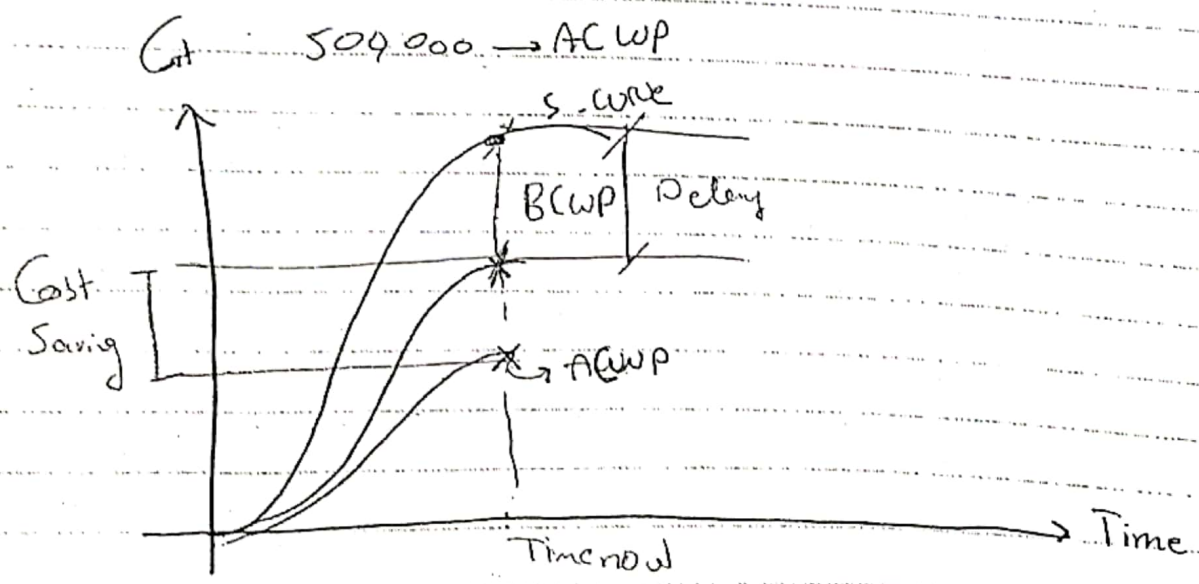 Cost 500,000 → ACWP
S-curve
BCWP Delay
Cost
Saving
ACWP
Time
Timenow